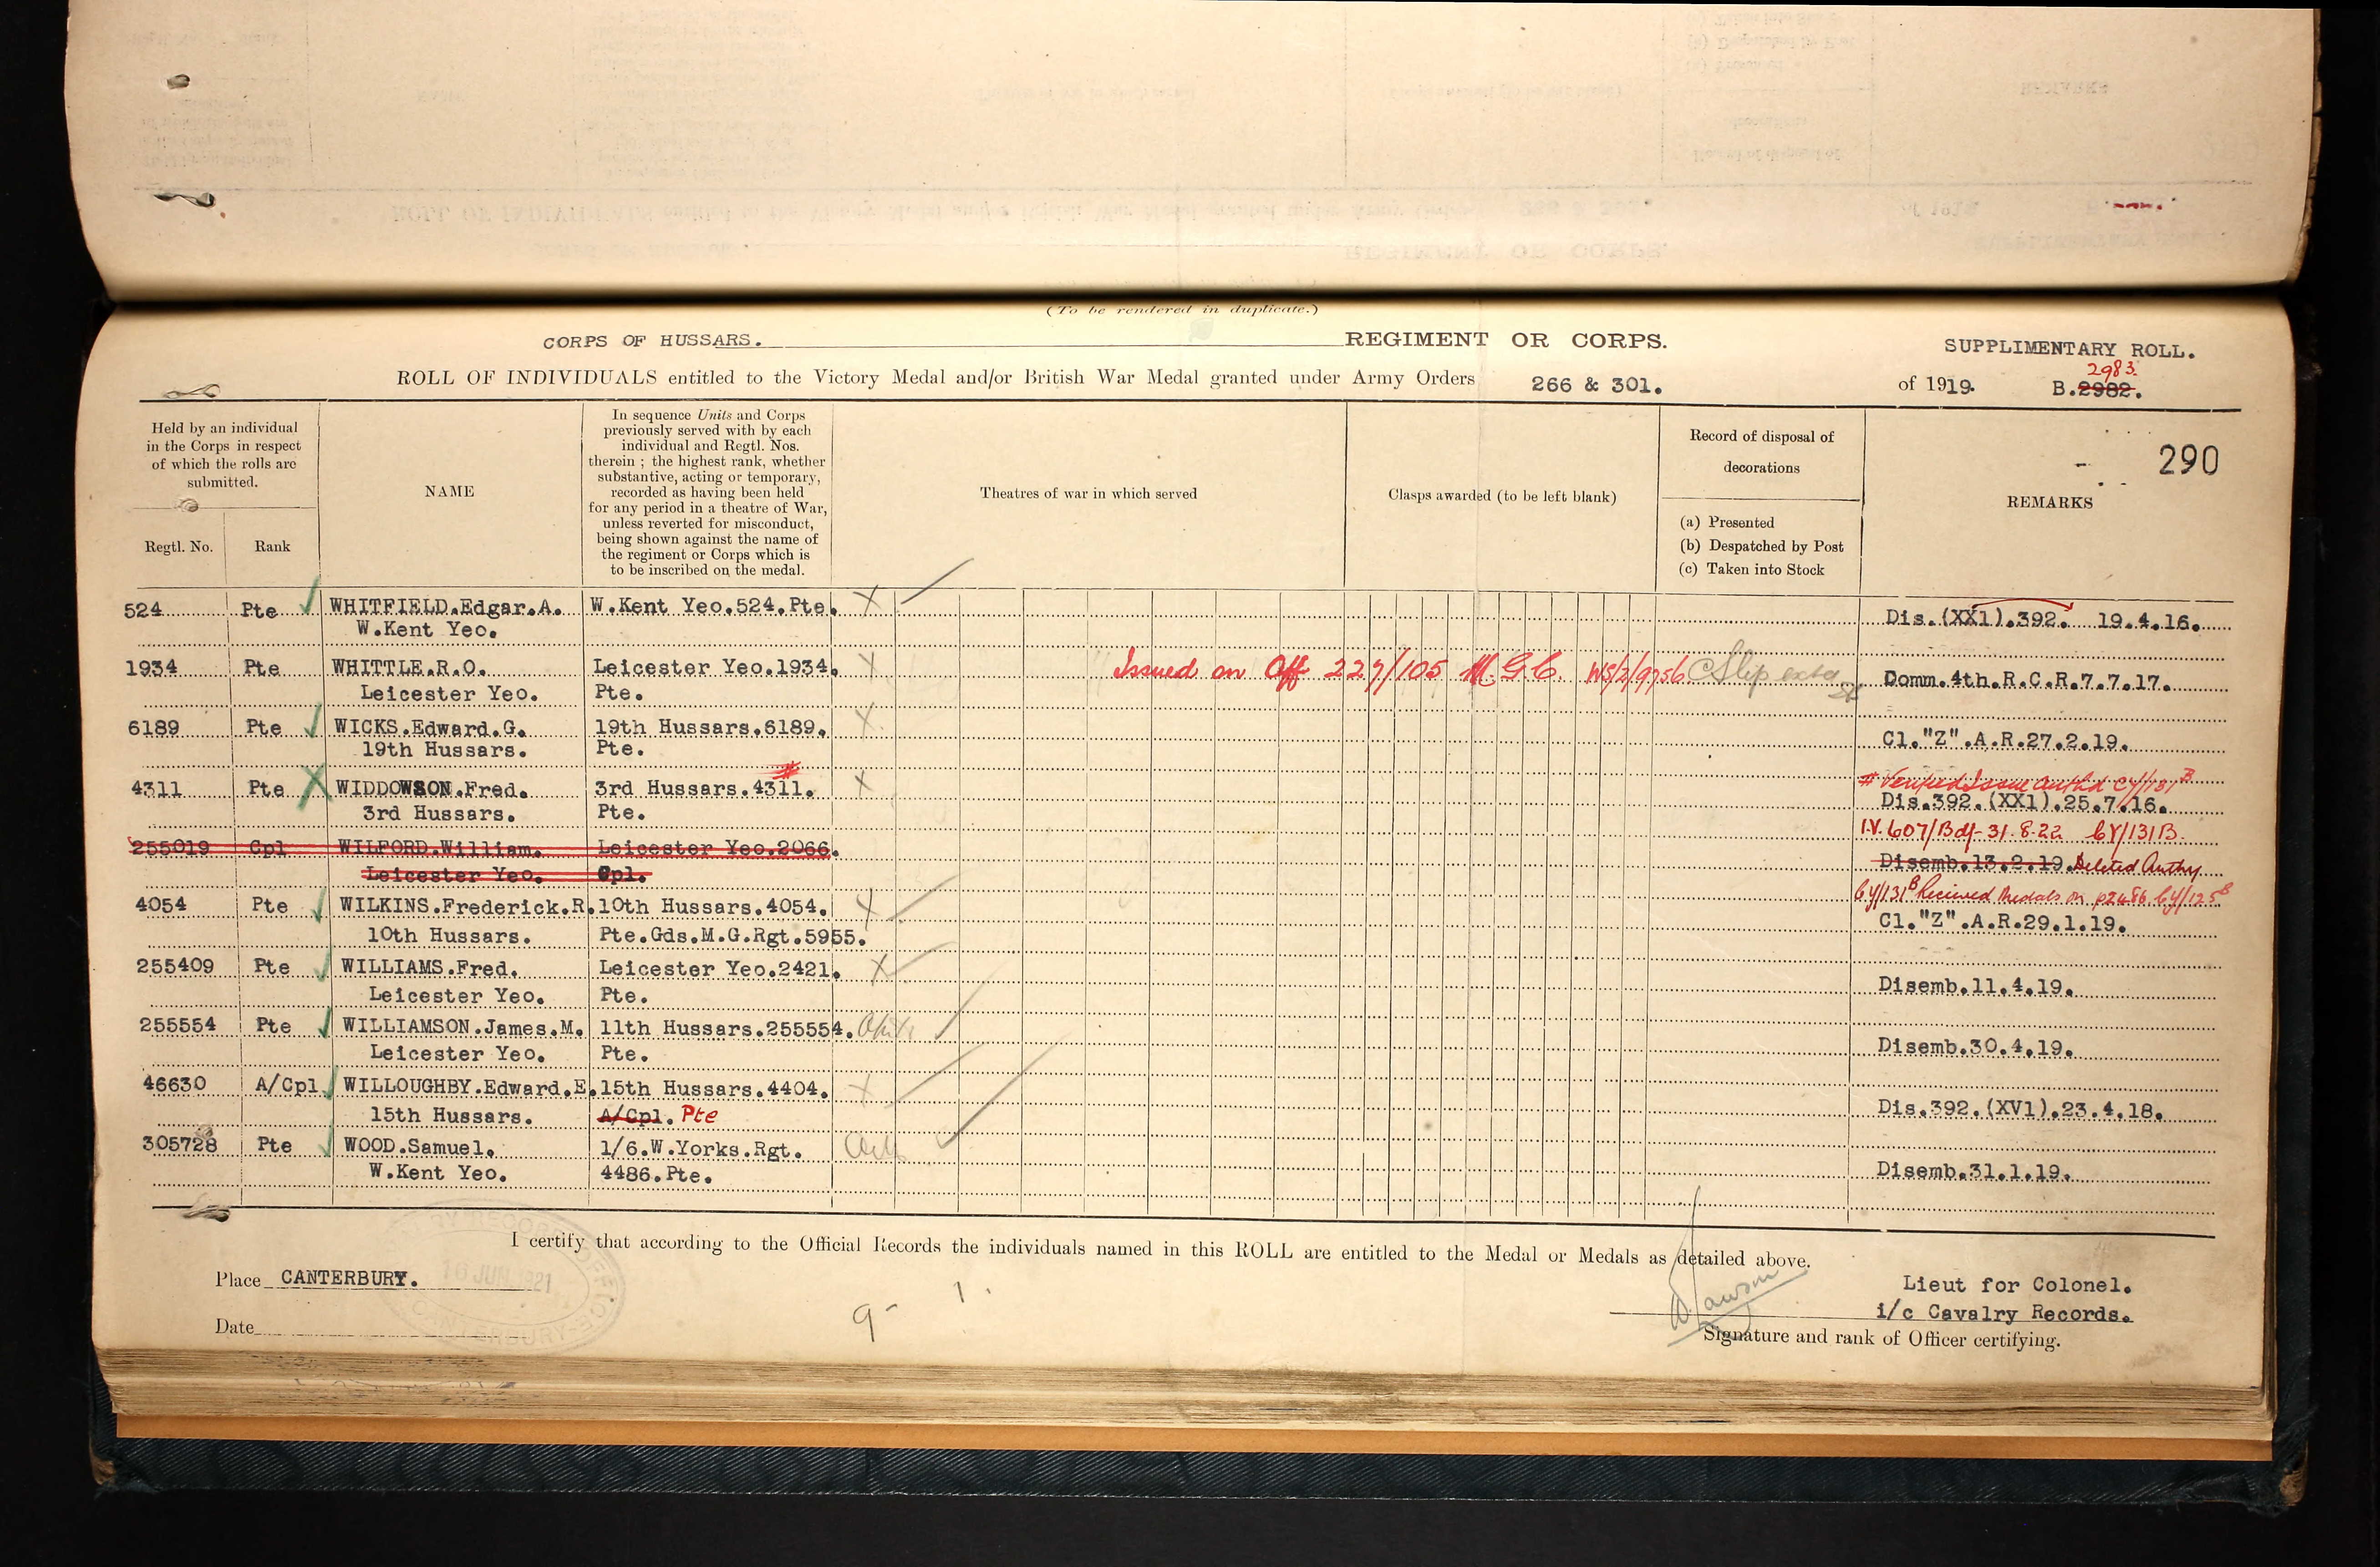 (To be rendered in duplicate.)
CORPS OF HUSSARS. REGIMENT OR CORPS. SUPPLIMENTARY ROLL.
2983.
ROLL OF INDIVIDUALS entitled to the Victory Medal and/or British War Medal granted under Army Orders 266 & 301. of 1919. B.2982.
290
Held by an individual in the Corps in respect of which the rolls are submitted.
Regtl. No.
Rank
NAME
In sequence Units and Corps previously served with by each individual and Regtl. Nos. therein ; the highest rank, whether substantive, acting or temporary, recorded as having been held for any period in a theatre of War, unless reverted for misconduct, being shown against the name of the regiment or Corps which is to be inscribed on the medal.
Theatres of war in which served
Clasps awarded (to be left blank)
Record of disposal of decorations
(a) Presented
(b) Despatched by Post
(c) Taken into Stock
REMARKS
524 Pte WHITFIELD.Edgar.A. W.Kent Yeo.524.Pte. X Dis.(XX1).392. 19.4.16.
W.Kent Yeo.
1934 Pte WHITTLE.R.O. Leicester Yeo.1934. X Issued on Off 227/105 M.G.C. WS/2/9756 Slip extd
Leicester Yeo. Pte. Domm.4th.R.C.R.7.7.17.
6189 Pte WICKS.Edward.G. 19th Hussars.6189. X
19th Hussars. Pte. Cl."Z".A.R.27.2.19.
4311 Pte WIDDOWSON.Fred. 3rd Hussars.4311. # X # Verified Issue Authd CY/131 B
3rd Hussars. Pte. Dis.392.(XX1).25.7.16.
I.V. 607/Bdf- 31.8.22 CY/131B.
255019 Cpl WILFORD.William. Leicester Yeo.2066.
Leicester Yeo. Cpl. Disemb.13.2.19. Deleted Authy
CY/131 B Received Medals on p2486 CY/125 B
4054 Pte WILKINS.Frederick.R. 10th Hussars.4054. X
10th Hussars. Pte.Gds.M.G.Rgt.5955. Cl."Z".A.R.29.1.19.
255409 Pte WILLIAMS.Fred. Leicester Yeo.2421. X
Leicester Yeo. Pte. Disemb.11.4.19.
255554 Pte WILLIAMSON.James.M. 11th Hussars.255554.
Leicester Yeo. Pte. Disemb.30.4.19.
46630 A/Cpl WILLOUGHBY.Edward.E. 15th Hussars.4404. X
15th Hussars. A/Cpl. Pte Dis.392.(XV1).23.4.18.
305728 Pte WOOD.Samuel. 1/6.W.Yorks.Rgt.
W.Kent Yeo. 4486.Pte. Disemb.31.1.19.
I certify that according to the Official Records the individuals named in this ROLL are entitled to the Medal or Medals as detailed above.
Place CANTERBURY.
16 JUN 1921
Date
9- 1.
Lieut for Colonel.
i/c Cavalry Records.
Signature and rank of Officer certifying.